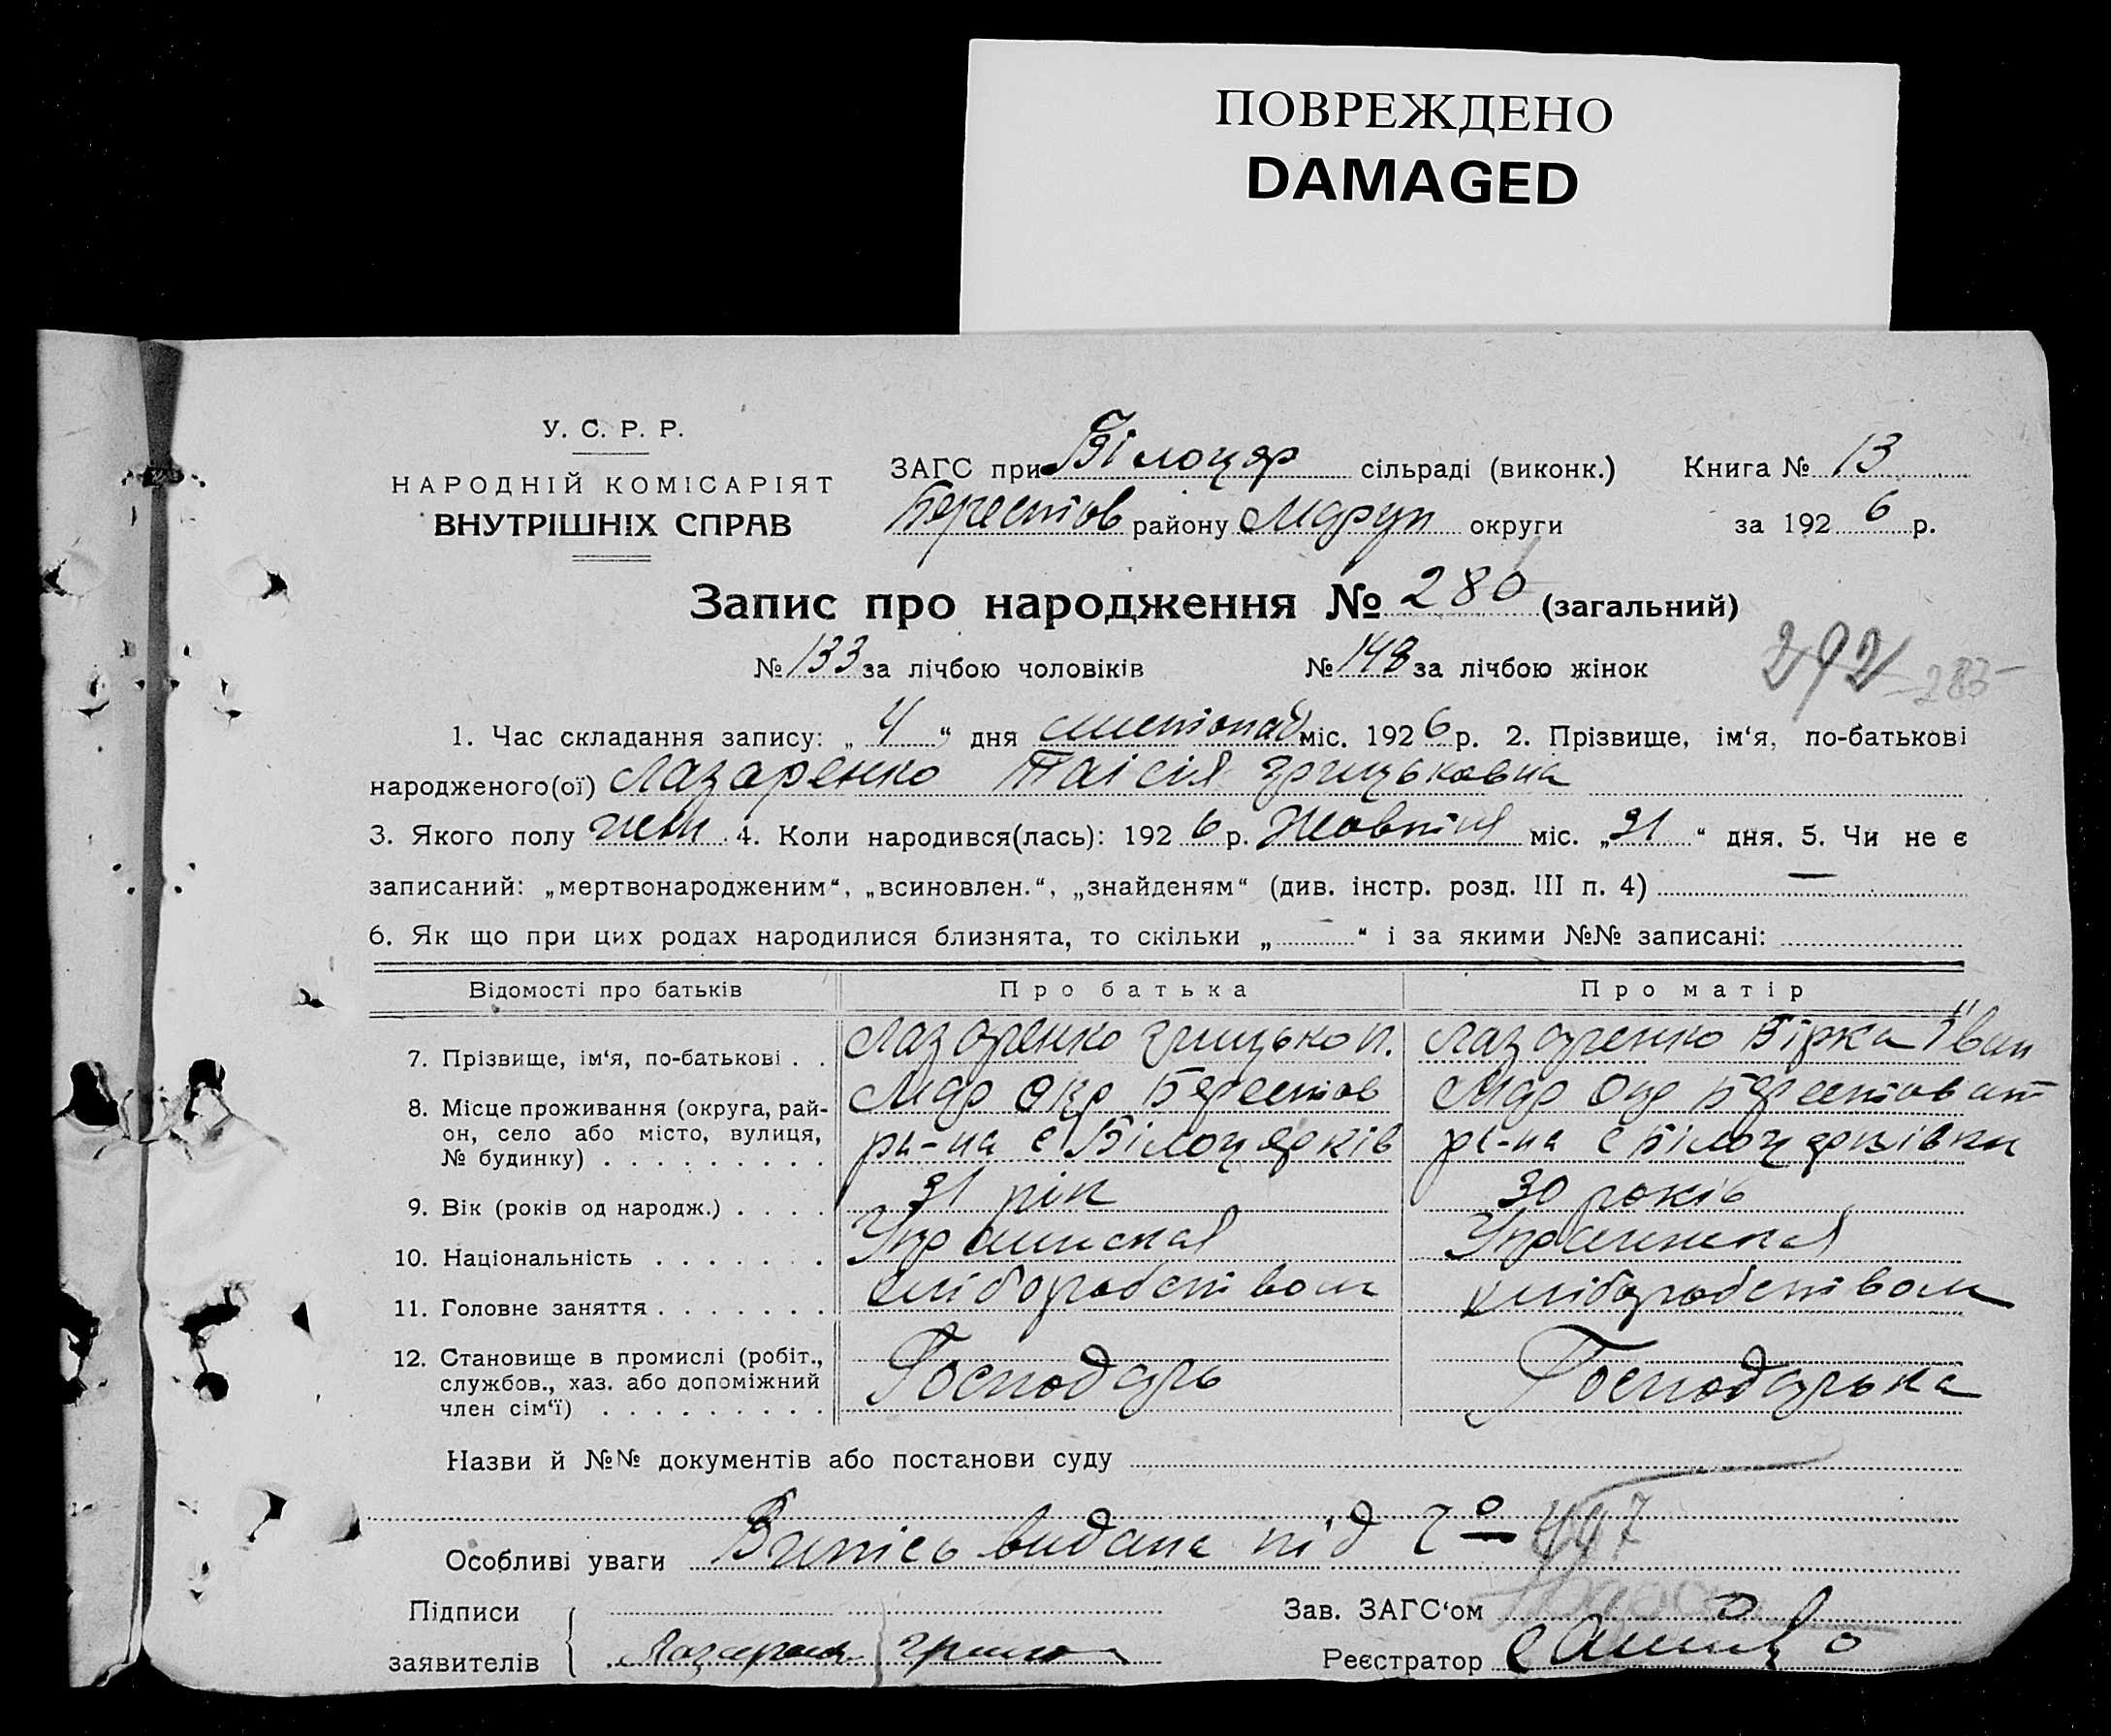 ПОВРЕЖДЕНО
DAMAGED
У. С. Р. Р.
НАРОДНІЙ КОМІСАРІЯТ
ВНУТРІШНІХ СПРАВ
ЗАГС при Білоцер сільраді (виконк.) Книга № 13
Берестов району Марун округи за 192 6 р.
Запис про народження № 280 (загальний)
№ 133 за лічбою чоловіків № 148 за лічбою жінок 292 285
1. Час складання запису: „ 4 “ дня листопад міс. 192 6 р. 2. Прізвище, ім‘я, по-батькові
народженого(ої) Лазаренко Таісія Грицьковна
3. Якого полу жен 4. Коли народився(лась): 192 6 р. Жовтня міс. „ 31 “ дня. 5. Чи не є
записаний: „мертвонародженим“, „всиновлен.“, „знайденям“ (див. інстр. розд. III п. 4) —
6. Як що при цих родах народилися близнята, то скільки „ “ і за якими №№ записані:
Відомості про батьків Про батька Про матір
7. Прізвище, ім‘я, по-батькові . . Лазаренко Грицько п. Лазаренко Вірка Іван
8. Місце проживання (округа, рай- Мар Окр Берестов Мар Окр Берестов
он, село або місто, вулиця, ри-на с Білоцерків ри-на с Білоцерківки
№ будинку) . . . . . . . . .
9. Вік (років од народж.) . . . . 31 рік 30 років
10. Національність . . . . . . . Украинская Украинская
11. Головне заняття . . . . . . . хліборобством хліборобством
12. Становище в промислі (робіт.,
службов., хаз. або допоміжний Господарь Господарька
член сім‘ї) . . . . . . . . .
Назви й №№ документів або постанови суду
Особливі уваги Випісь видана під 447
Підписи Зав. ЗАГС‘ом
заявителів Реєстратор